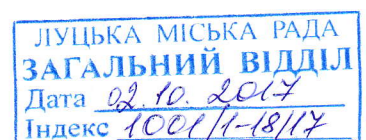 ЛУЦЬКА МІСЬКА РАДА
ЗАГАЛЬНИЙ ВІДДІЛ
Дата 02.10.2017
Індекс 1001/1-18/17